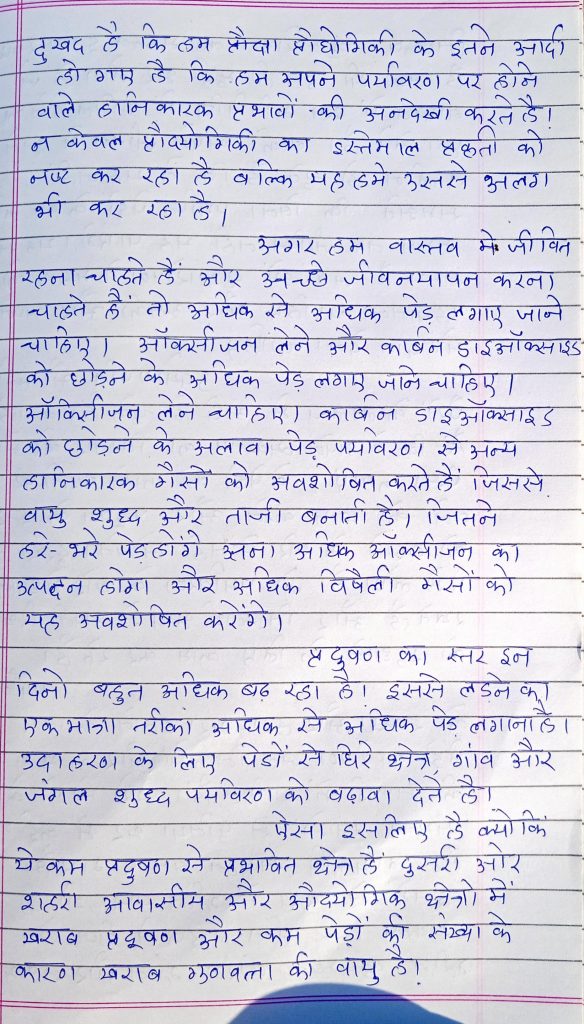 दुखद है कि हम प्रौक्षा प्रौद्योगिकी के इतने आदी
हो गए है कि हम अपने पर्यावरण पर होने
वाले हानिकारक प्रभावों की अनदेखी करते है।
न केवल प्रौदयोगिकी का इस्तेमाल प्रकृती को
नष्ट कर रहा है बल्कि यह हमे उससे अलग
भी कर रहा है।
अगर हम वास्तव मे जीवित
रहना चाहते हैं और अच्छे जीवनयापन करना
चाहते हैं तो अधिक से अधिक पेड़ लगाए जाने
चाहिए। ऑक्सीजन लेने और कार्बन डाइऑक्साइड
को छोड़ने के अधिक पेड़ लगाए जाने चाहिए।
ऑक्सिजन लेने चाहिए। कार्बन डाइऑक्साइड
को छोड़ने के अलावा पेड़ पर्यावरण से अन्य
हानिकारक गैसों को अवशोषित करते हैं जिससे
वायु शुध्द और ताजी बनाती है। जितने
हरे-भरे पेड़ होंगे उतना अधिक ऑक्सीजन का
उत्पदन होगा और अधिक विषैली गैसों को
यह अवशोषित करेंगे।
प्रदुषण का स्तर इन
दिनो बहुत अधिक बढ़ रहा है। इससे लड़ने का
एक मात्रा तरीका अधिक से अधिक पेड़ लगाना है।
उदाहरण के लिए पेडों से घिरे क्षेत्र, गांव और
जंगल शुध्द पर्यावरण को बढ़ावा देते है।
ऐसा इसलिए है क्योंकि
ये कम प्रदुषण से प्रभावित क्षेत्र हैं दुसरी और
शहरी आवासीय और औदयोगिक क्षेत्रो में
खराब प्रदूषण और कम पेड़ों की संख्या के
कारण खराब गुणवता की वायु है।